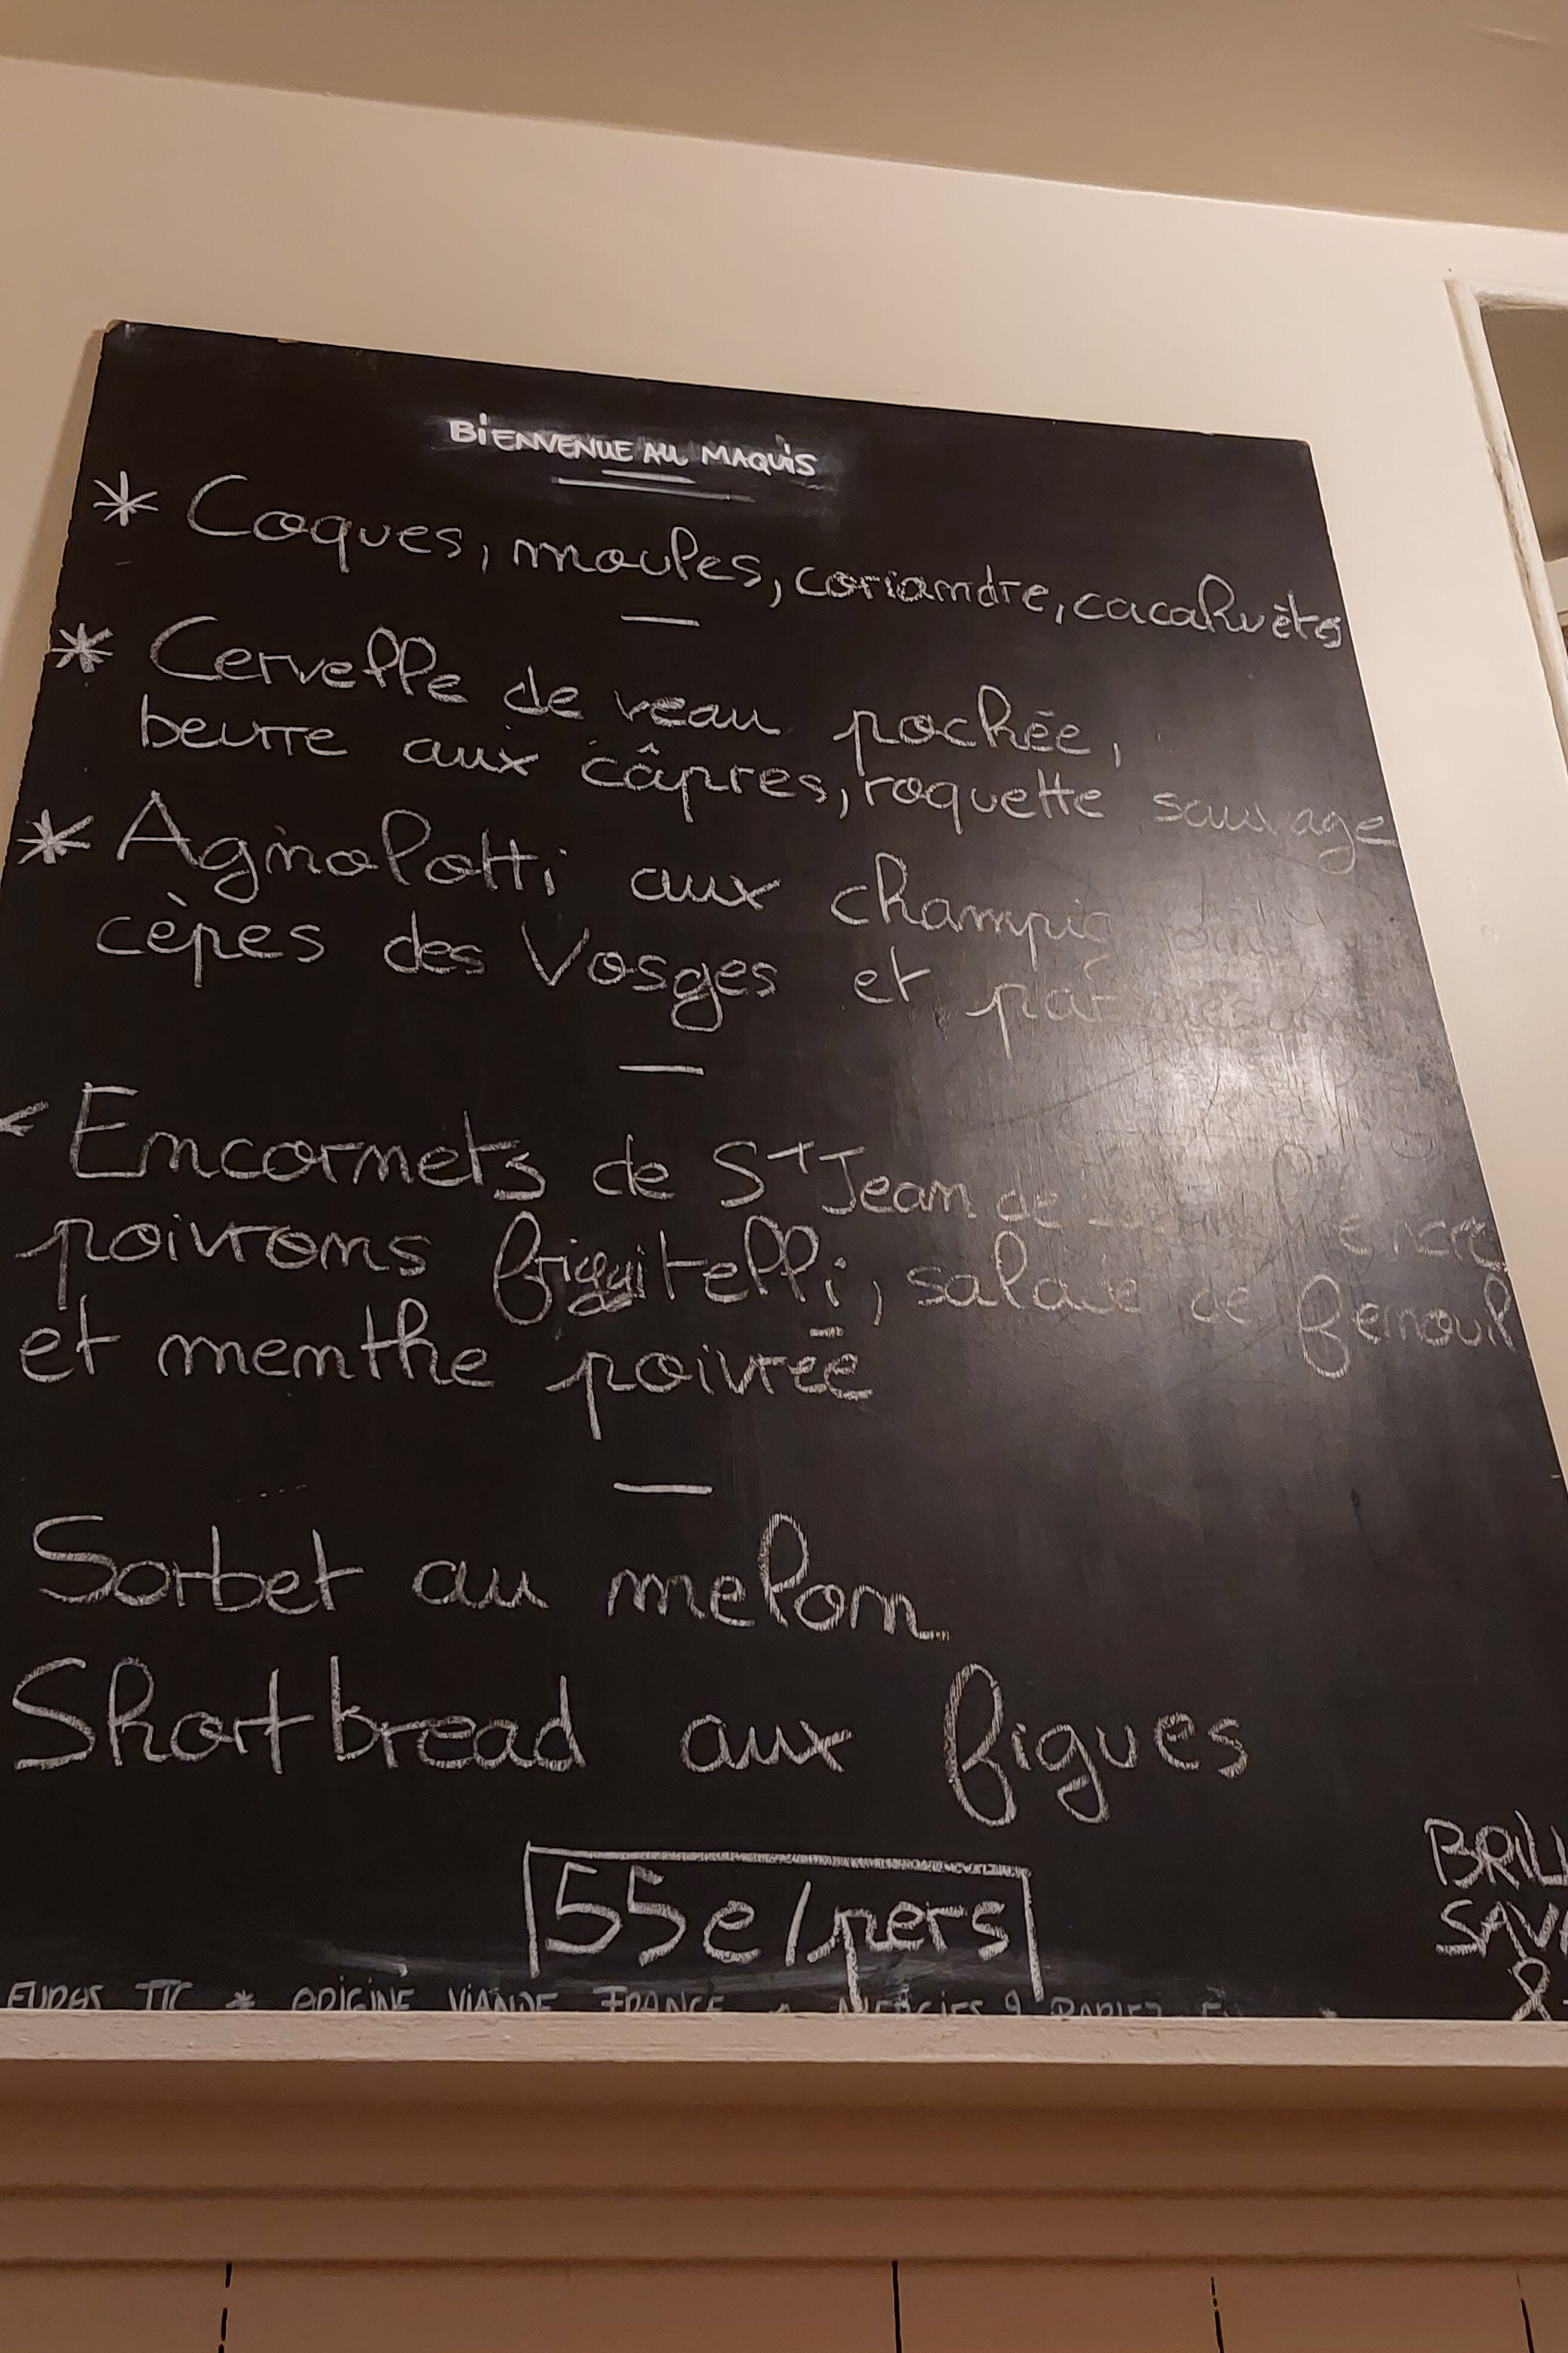 BiENVENUE AU MAQUiS
* Coques, moules, coriandre, cacahuètes
* Cervelle de veau pochée,
beurre aux câpres, roquette sauvage
* Agnolotti aux champignons
cèpes des Vosges et parmesan
Encornets de St Jean de l'encre
poivrons friggitelli, salade de fenouil
et menthe poivrée
Sorbet au melon
Shortbread aux figues
55e/pers
BRILL
SAVA
&
EUROS TTC * ORIGINE VIANDE FRANCE